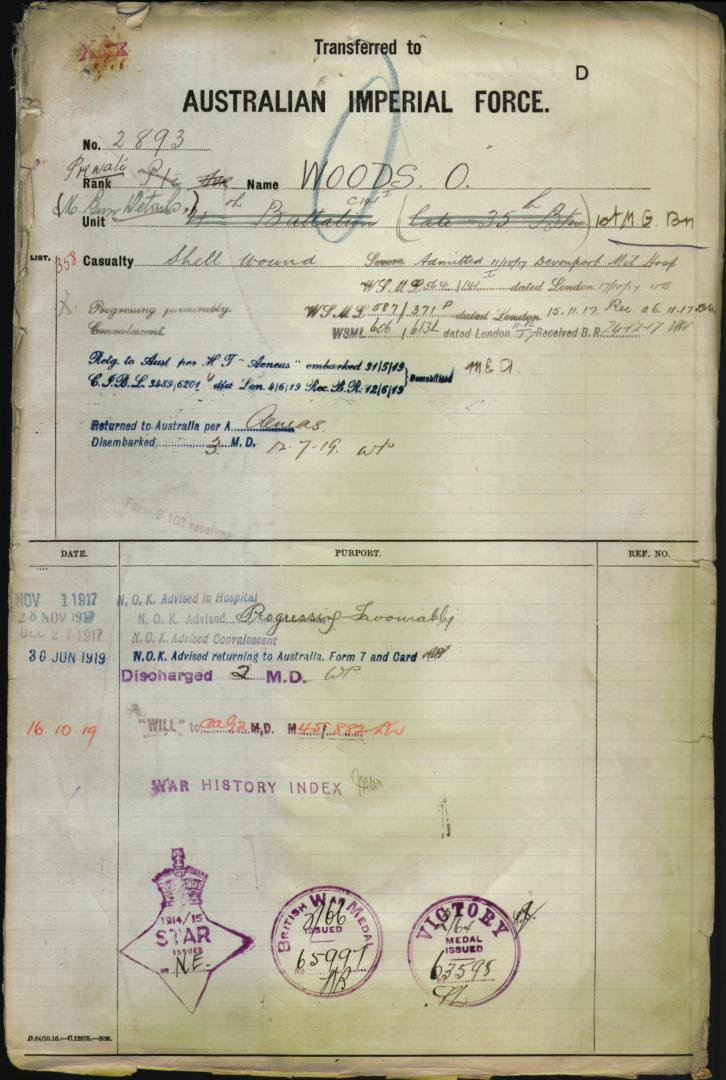 Transferred to
D
AUSTRALIAN IMPERIAL FORCE.
No. 2893
Private
Rank Pte Name WOODS. O.
{M. Gun Details.}
Unit Battalion (late 35th Btn) 1st M.G. Bn
LIST. 358 Casualty Shell wound Severe Admitted 11/10/17 Devonport Mil Hosp
W S M L 564 / 141 dated London 17/10/17 WB
X Progressing favourably. W S M L 587 / 371 P dated London 15.11.17. Rec. 26.11.17
Convalescent W3ML 606 / 613L dated London 11-12/17 Received B.R. 24-12-17
Retg to Aust per H T "Aeneas" embarked 31/5/19
C.I.B.L. 3489/6201 dtd Lon. 4/6/19 Rec. B.R. 12/6/19 } Demobilized M E A.
Returned to Australia per A Aeneas.
Disembarked 3 M.D. 12-7-19. WP
Form B 103 received
DATE. PURPORT. REF. NO.
NOV 1 1917 N. O. K. Advised in Hospital
28 NOV 1917 N. O. K. Advised Progressing Favourably
DEC 27 1917 N. O. K. Advised Convalescent
30 JUN 1919 N.O.K. Advised returning to Australia. Form 7 and Card
Discharged 2 M.D. WP
16.10.19 "WILL" to M.D. M 45/882
WAR HISTORY INDEX
1914/15
STAR
ISSUED
No N.E.
BRITISH WAR MEDAL
2/66
ISSUED
No 65997
VICTORY
2/64
MEDAL
ISSUED
No 63598
D.84/10.16.—C.12878.—50M.